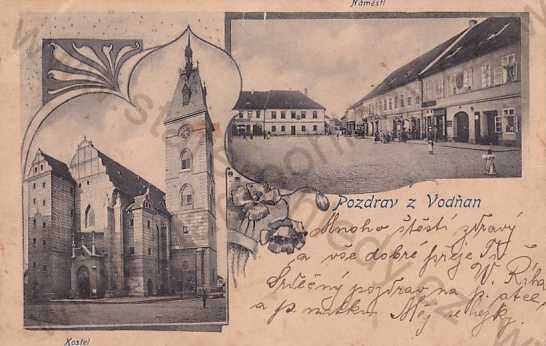 Náměstí
Pozdrav z Vodňan
Mnoho štěstí zdraví
a vše dobré přeje Ti
W. Říha
Srdečný pozdrav na p. otce,
a p. matku. Měj se hezky.
Kostel